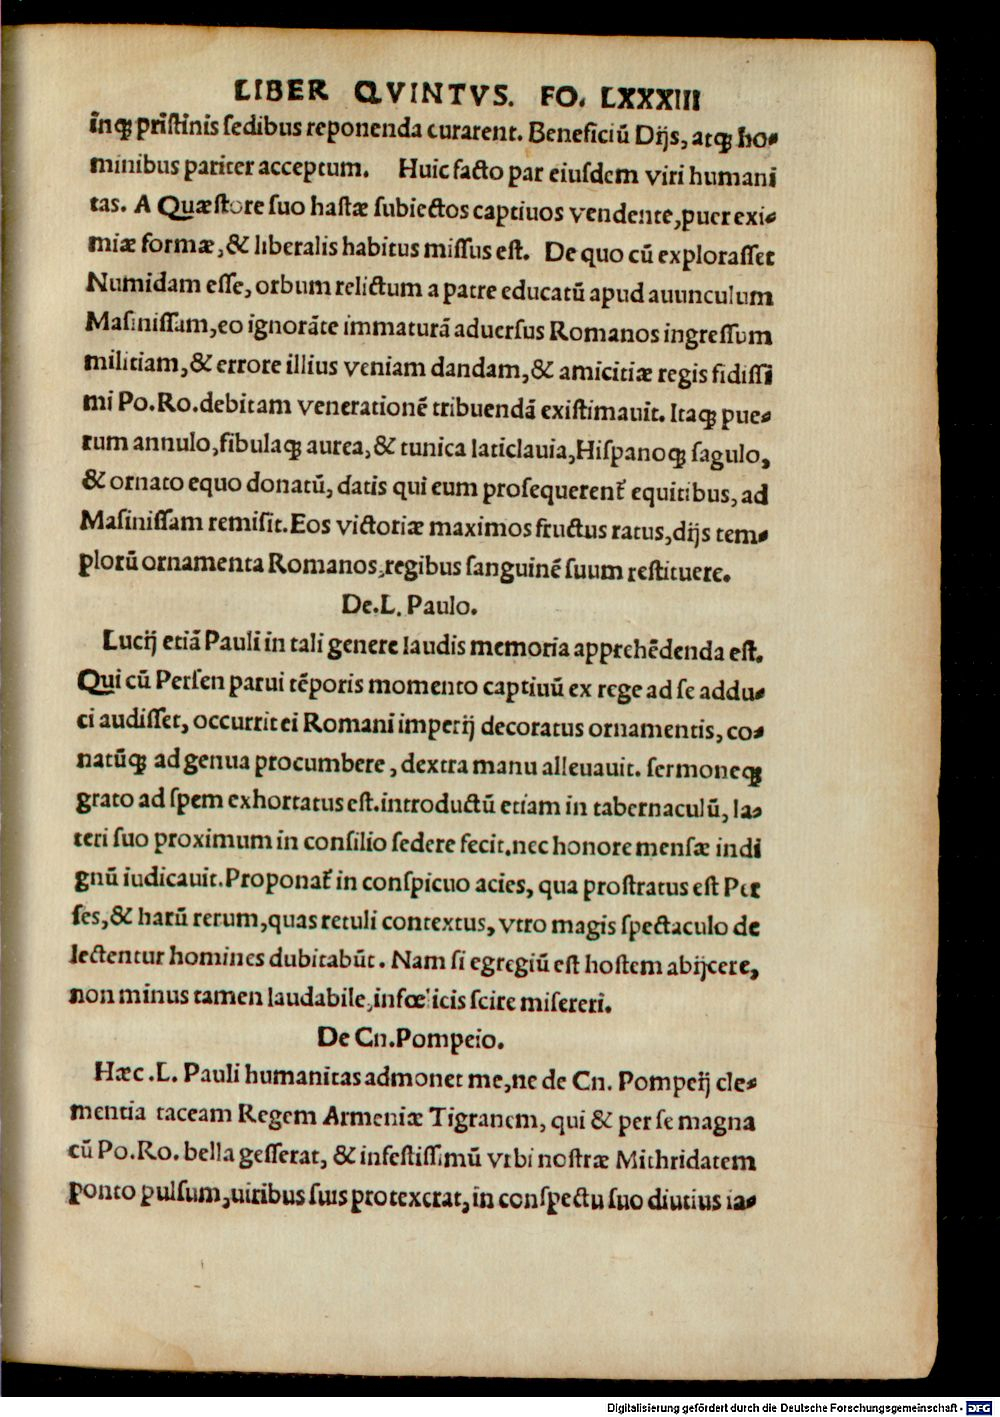 LIBER QVINTVS. FO. LXXXIII
inq̃ pristinis sedibus reponenda curarent. Beneficiũ Dijs, atq̃ ho-
minibus pariter acceptum. Huic facto par eiusdem viri humani
tas. A Quæstore suo hastæ subiectos captiuos vendente, puer exi-
miæ formæ, & liberalis habitus missus est. De quo cũ explorasset
Numidam esse, orbum relictum a patre educatũ apud auunculum
Masinissam, eo ignorãte immaturã aduersus Romanos ingressum
militiam, & errore illius veniam dandam, & amicitiæ regis fidissi
mi Po.Ro. debitam venerationẽ tribuendã existimauit. Itaq̃ pue-
rum annulo, fibulaq̃ aurea, & tunica laticlauia, Hispanoq̃ sagulo,
& ornato equo donatũ, datis qui eum prosequerent᷑ equitibus, ad
Masinissam remisit. Eos victoriæ maximos fructus ratus, dijs tem-
plorũ ornamenta Romanos, regibus sanguinẽ suum restituere.
De. L. Paulo.
Lucij etiã Pauli in tali genere laudis memoria apprehẽdenda est.
Qui cũ Persen parui tẽporis momento captiuũ ex rege ad se addu-
ci audisset, occurrit ei Romani imperij decoratus ornamentis, co-
natũq̃ ad genua procumbere, dextra manu alleuauit. sermoneq̃
grato ad spem exhortatus est. introductũ etiam in tabernaculũ, la-
teri suo proximum in consilio sedere fecit. nec honore mensæ indi
gnũ iudicauit. Proponat᷑ in conspicuo acies, qua prostratus est Per
ses, & harũ rerum, quas retuli contextus, vtro magis spectaculo de
lectentur homines dubitabũt. Nam si egregiũ est hostem abijcere,
non minus tamen laudabile, infœlicis scire misereri.
De Cn. Pompeio.
Hæc .L. Pauli humanitas admonet me, ne de Cn. Pompeij cle-
mentia taceam Regem Armeniæ Tigranem, qui & per se magna
cũ Po.Ro. bella gesserat, & infestissimũ vrbi nostræ Mithridatem
ponto pulsum, uiribus suis protexerat, in conspectu suo diutius ia-
Digitalisierung gefördert durch die Deutsche Forschungsgemeinschaft - DFG